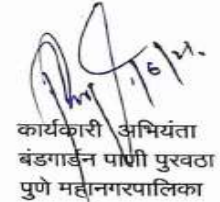 1/6/21.
कार्यकारी अभियंता
बंडगार्डन पाणी पुरवठा
पुणे महानगरपालिका